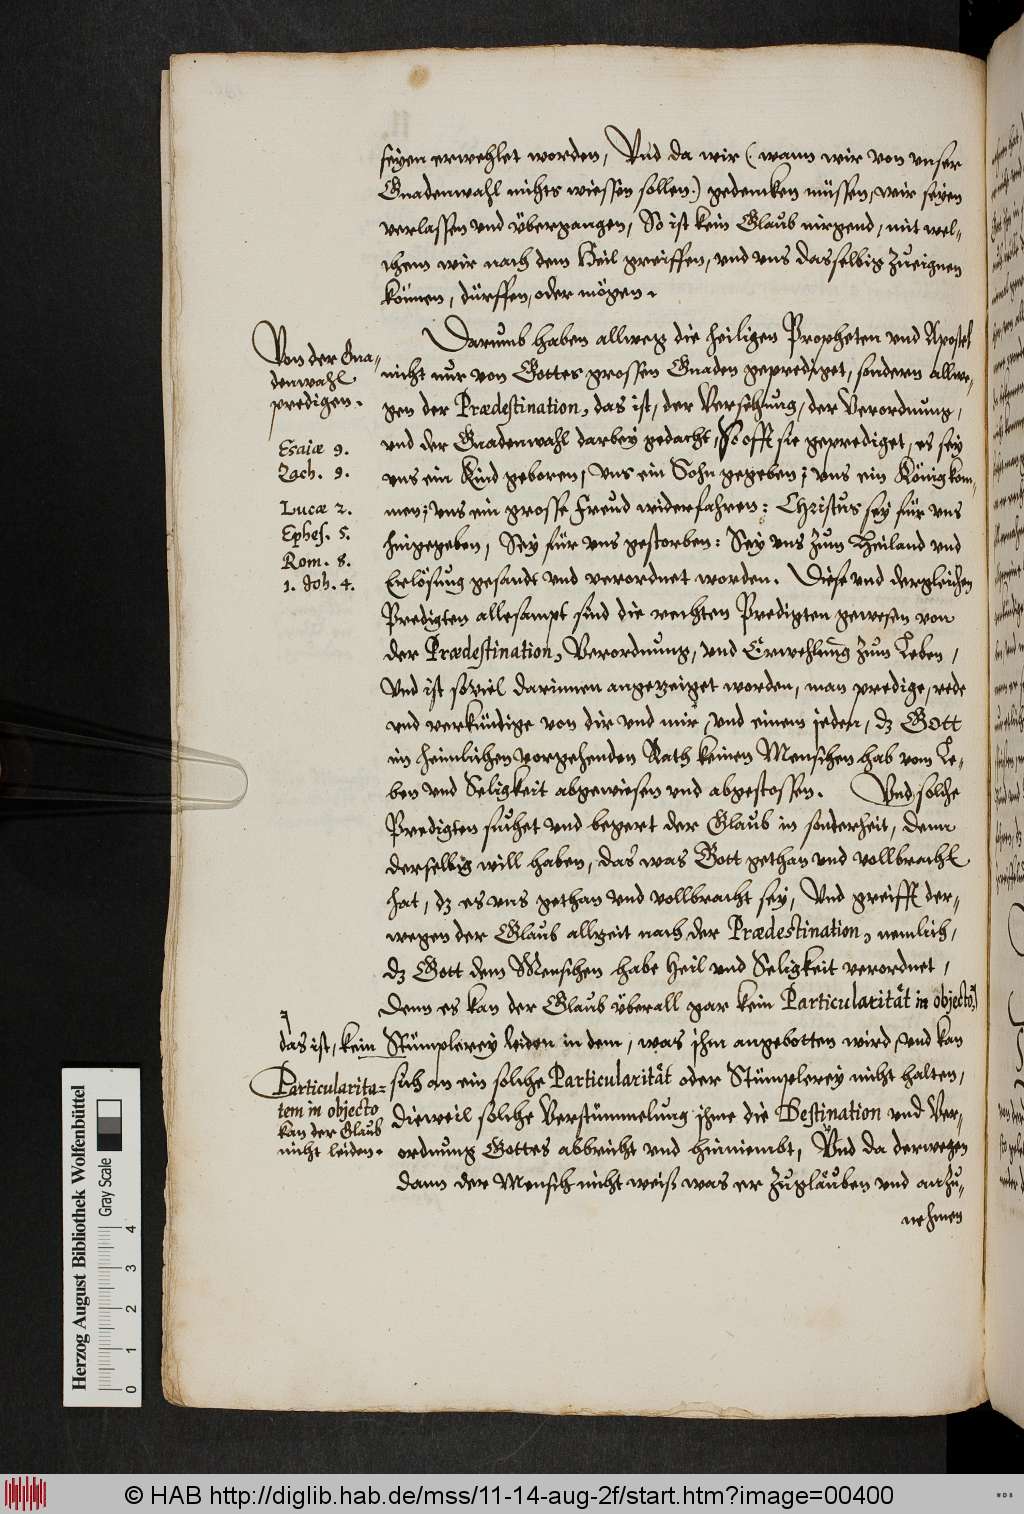 seyen erwehlet worden, Vnd da wir (wann wir von vnser
Gnadenwahl nichts wiessen sollen.) gedencken müssen, wir seyen
verlassen vnd übergangen, So ist kein Glaub nirgend, mit wel-
chem wir nach dem Heil greiffen, vnd vns dasselbig zueignen
können, dürffen, oder mögen.
Darumb haben allweg die heiligen Propheten vnd Apostel
nicht nur von Gottes grossen Gnaden geprediget, sondern allwe-
gen der Prædestination, das ist, der Versehung, der Verordnung,
vnd der Gnadenwahl darbey gedacht, So offt sie geprediget, es sey
vns ein Kind geboren, Vns ein Sohn gegeben; vns ein König kom-
men; vns ein grosse Freud widerfahren: Christus sey für vns
hingegeben, Sey für vns gestorben: Sey vns zum Heiland vnd
Erlösung gesandt vnd verordnet worden. Diese vnd dergleichen
Predigten allesampt sind die rechten Predigten gewesen von
der Prædestination, Verordnung, vnd Erwehlung zum Leben,
Vnd ist soviel darinnen angezeiget worden, man predige, rede
vnd verkündige von dir vnd mir, vnd einem jeden, dz Gott
im heimlichen vorgehenden Rath keinen Menschen hab vom Le-
ben vnd Seligkeit abgewiesen vnd abgestossen. Vnd solche
Predigten suchet vnd begert der Glaub in sonderheit, denn
derselbig will haben, das was Gott gethan vnd vollbracht
hat, dz es vns gethan vnd vollbracht sey, Vnd greifft der-
wegen der Glaub allzeit nach der Prædestination, nemlich,
dz Gott dem Menschen habe Heil vnd Seligkeit verordnet,
Denn es kan der Glaub überall gar kein Particularität in objecto,
das ist, kein Stümplerey leiden in dem, was ihm angebotten wird, vnd kan
sich an ein solche Particularität oder Stümplerey nicht halten,
dieweil solche Verstümmelung ihme die Destination vnd Ver-
ordnung Gottes abbricht vnd hinnimbt, Vnd da derwegen
dann der Mensch nicht weiß was er zuglauben vnd anzu-
nehmen
Von der Gna-
denwahl
predigen.
Esaiæ 9.
Zach. 9.
Lucæ 2.
Ephes. 5.
Rom. 8.
1. Joh. 4.
Particularita-
tem in objecto
kan der Glaub
nicht leiden.
Herzog August Bibliothek Wolfenbüttel
Gray Scale
0 1 2 3 4
© HAB http://diglib.hab.de/mss/11-14-aug-2f/start.htm?image=00400